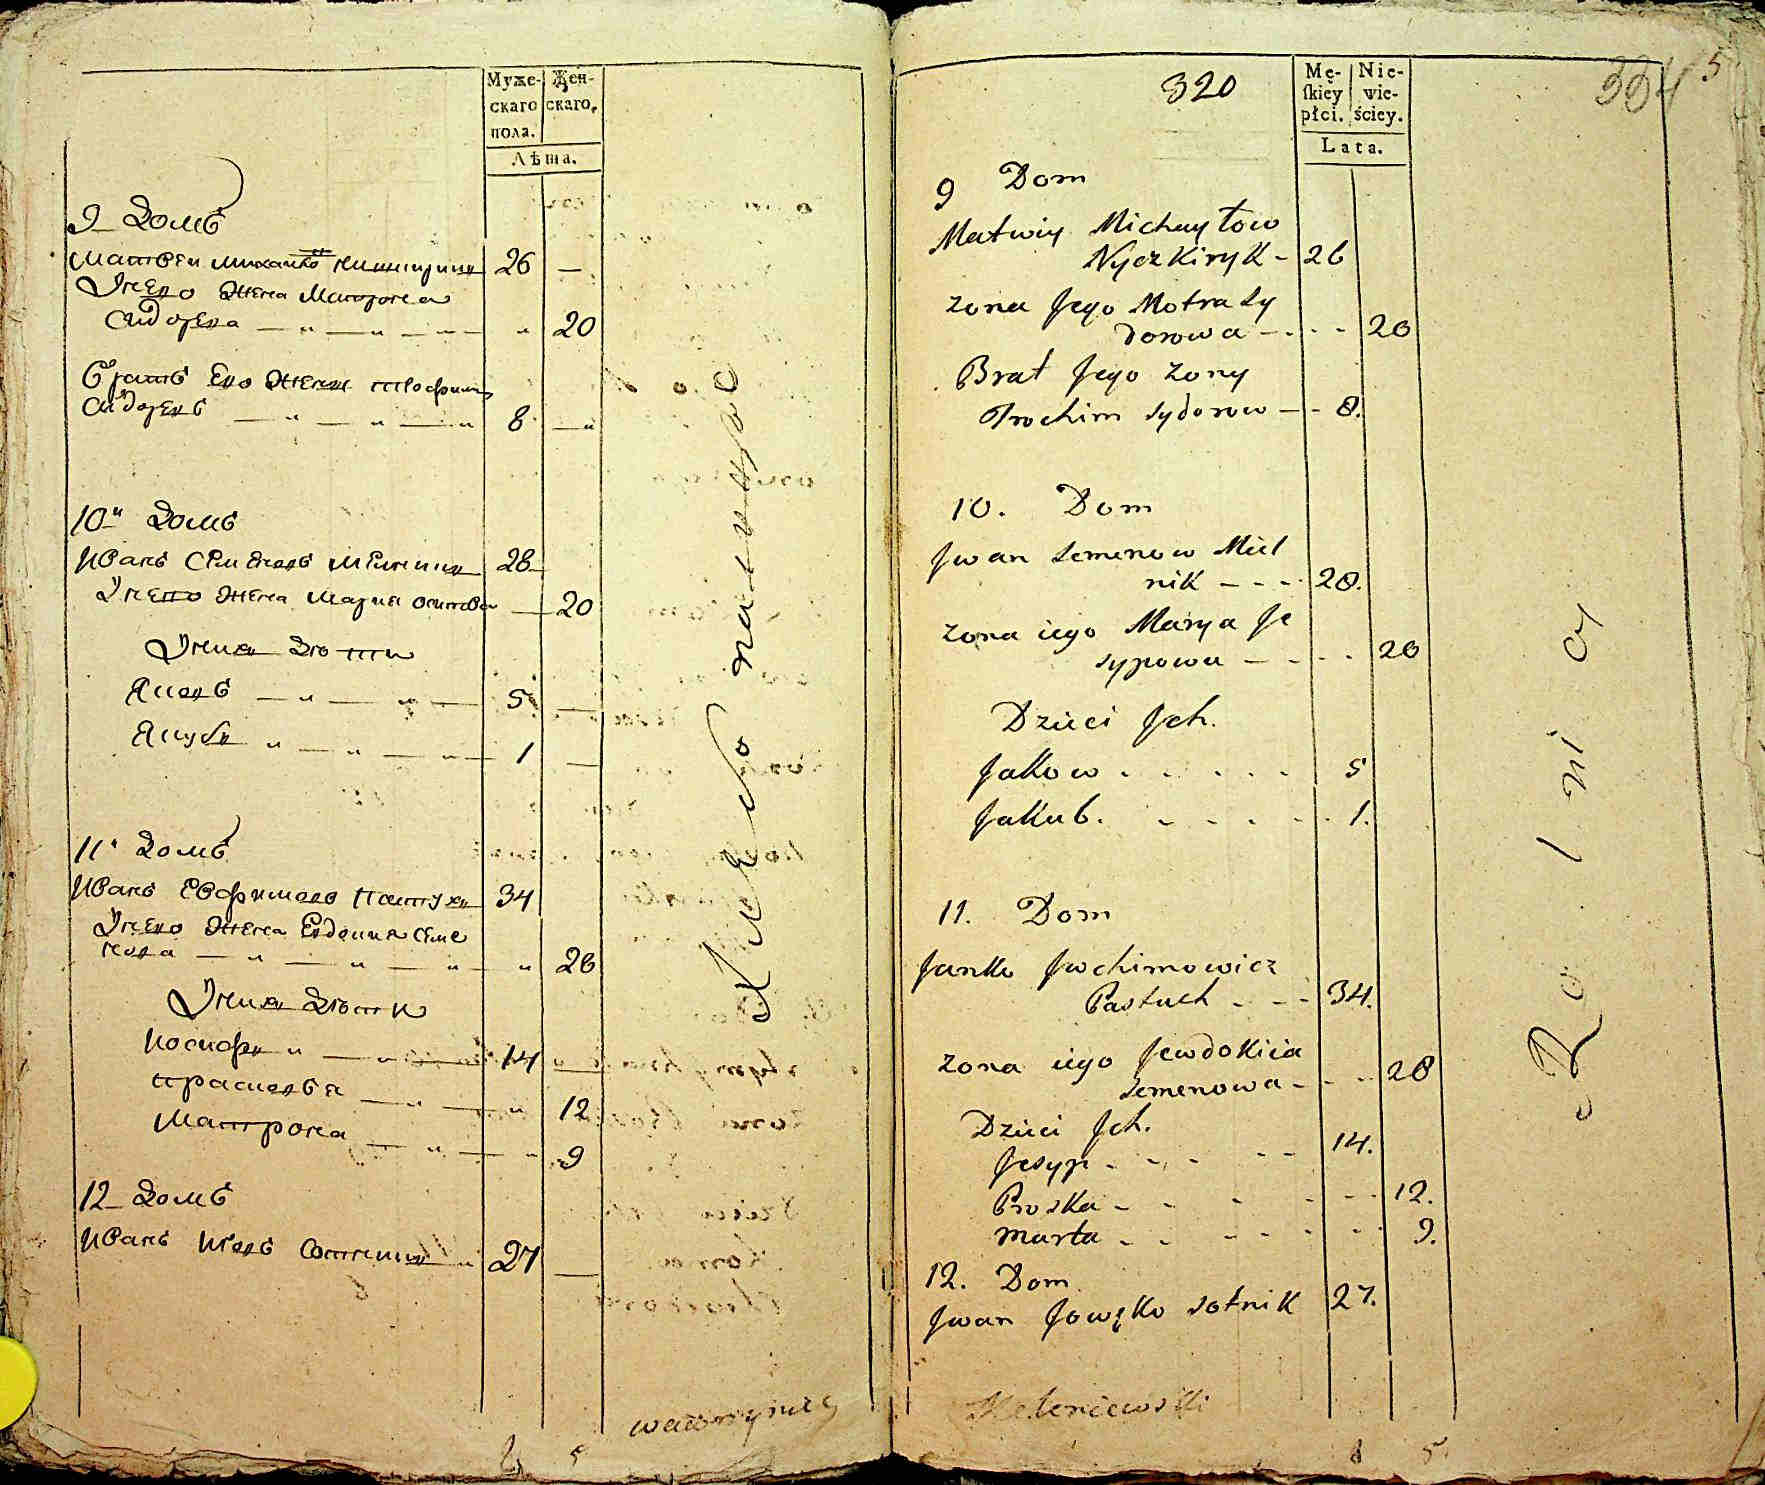 Муже-
скаго
пола.
Жен-
скаго.
Лѣта.
9 Домъ
Матвей Михайло 26 —
У него жена Матрона
Сидорова — " — " — " 20
Братъ Его жены Трофимъ
Сидоровъ — " — " — " 8 — "
10й Домъ
Иванъ Семеновъ Мелникъ 28
У него жена Марья Осипова — 20
У нихъ дѣти
Яковъ — " — " — 5 —
Якубъ " — " — " 1 —
11й Домъ
Иванъ Евфимовъ Пастухъ 34
У него жена Евдокия Семе
нова — " — " — " — " 28
У нихъ дѣти
Иосифъ " — " — 14 —
Прасковья — " — " 12
Матрона — " — " 9
12 Домъ
Иванъ Сотникъ " 27 —
6 5
320
334 5
Mę-
ſkiey
płci.
Nie-
wie-
ściey.
Lata.
9 Dom
Matwiy Michayłow
Nyczkiryk - 26
zona Jego Motra Sy
dorowa - - - 20
Brat Jego Zony
Trochim Sydorow - - 8.
10. Dom
Jwan Semenow Miel
nik - - - 28.
zona iego Marya Je
sypowa - - - 20
Dzieci Jch.
Jakow - - - - - 5
Jakub. - - - - - 1.
11. Dom
Janko Jwchimowicz
Pastuch - - - 34.
zona iego Jewdokiia
Semenowa - - - 28
Dzieci Jch.
Jesyp - - - - - 14.
Proska - - - - - 12.
Marta - - - - - 9.
12. Dom
Jwan Sotnik 27.
6 5